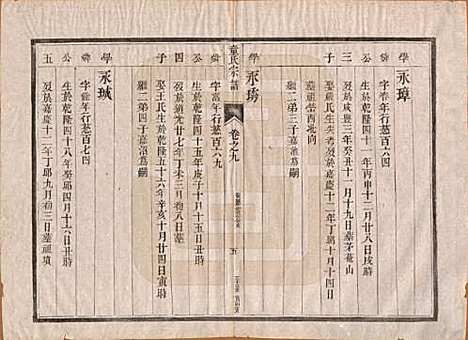 學 永璋
字春年行葱百六四
公生於乾隆四十一年丙申十二月廿八日戌時
歿於咸豐三年癸丑十一月十九日墓茅菴山
三娶嚴氏生失考歿於嘉慶十二年丁卯十月十四日
子墓祖塋西北向
繼二弟三子嘉
學 永
字富年行葱百六九
公生於乾隆四十五年庚子十月十五日丑時
四歿於道光廿七年丁未三月初八日墓
娶王氏生於乾隆五十六年辛亥十月廿四日寅時
子繼二弟四子嘉浩爲嗣
童氏宗譜
卷之九
五
學 永珹
字 年行葱百七四
公生於乾隆四十八年癸卯四月十六日丑時
五歿於嘉慶十二年丁卯九月初三日墓祖墳